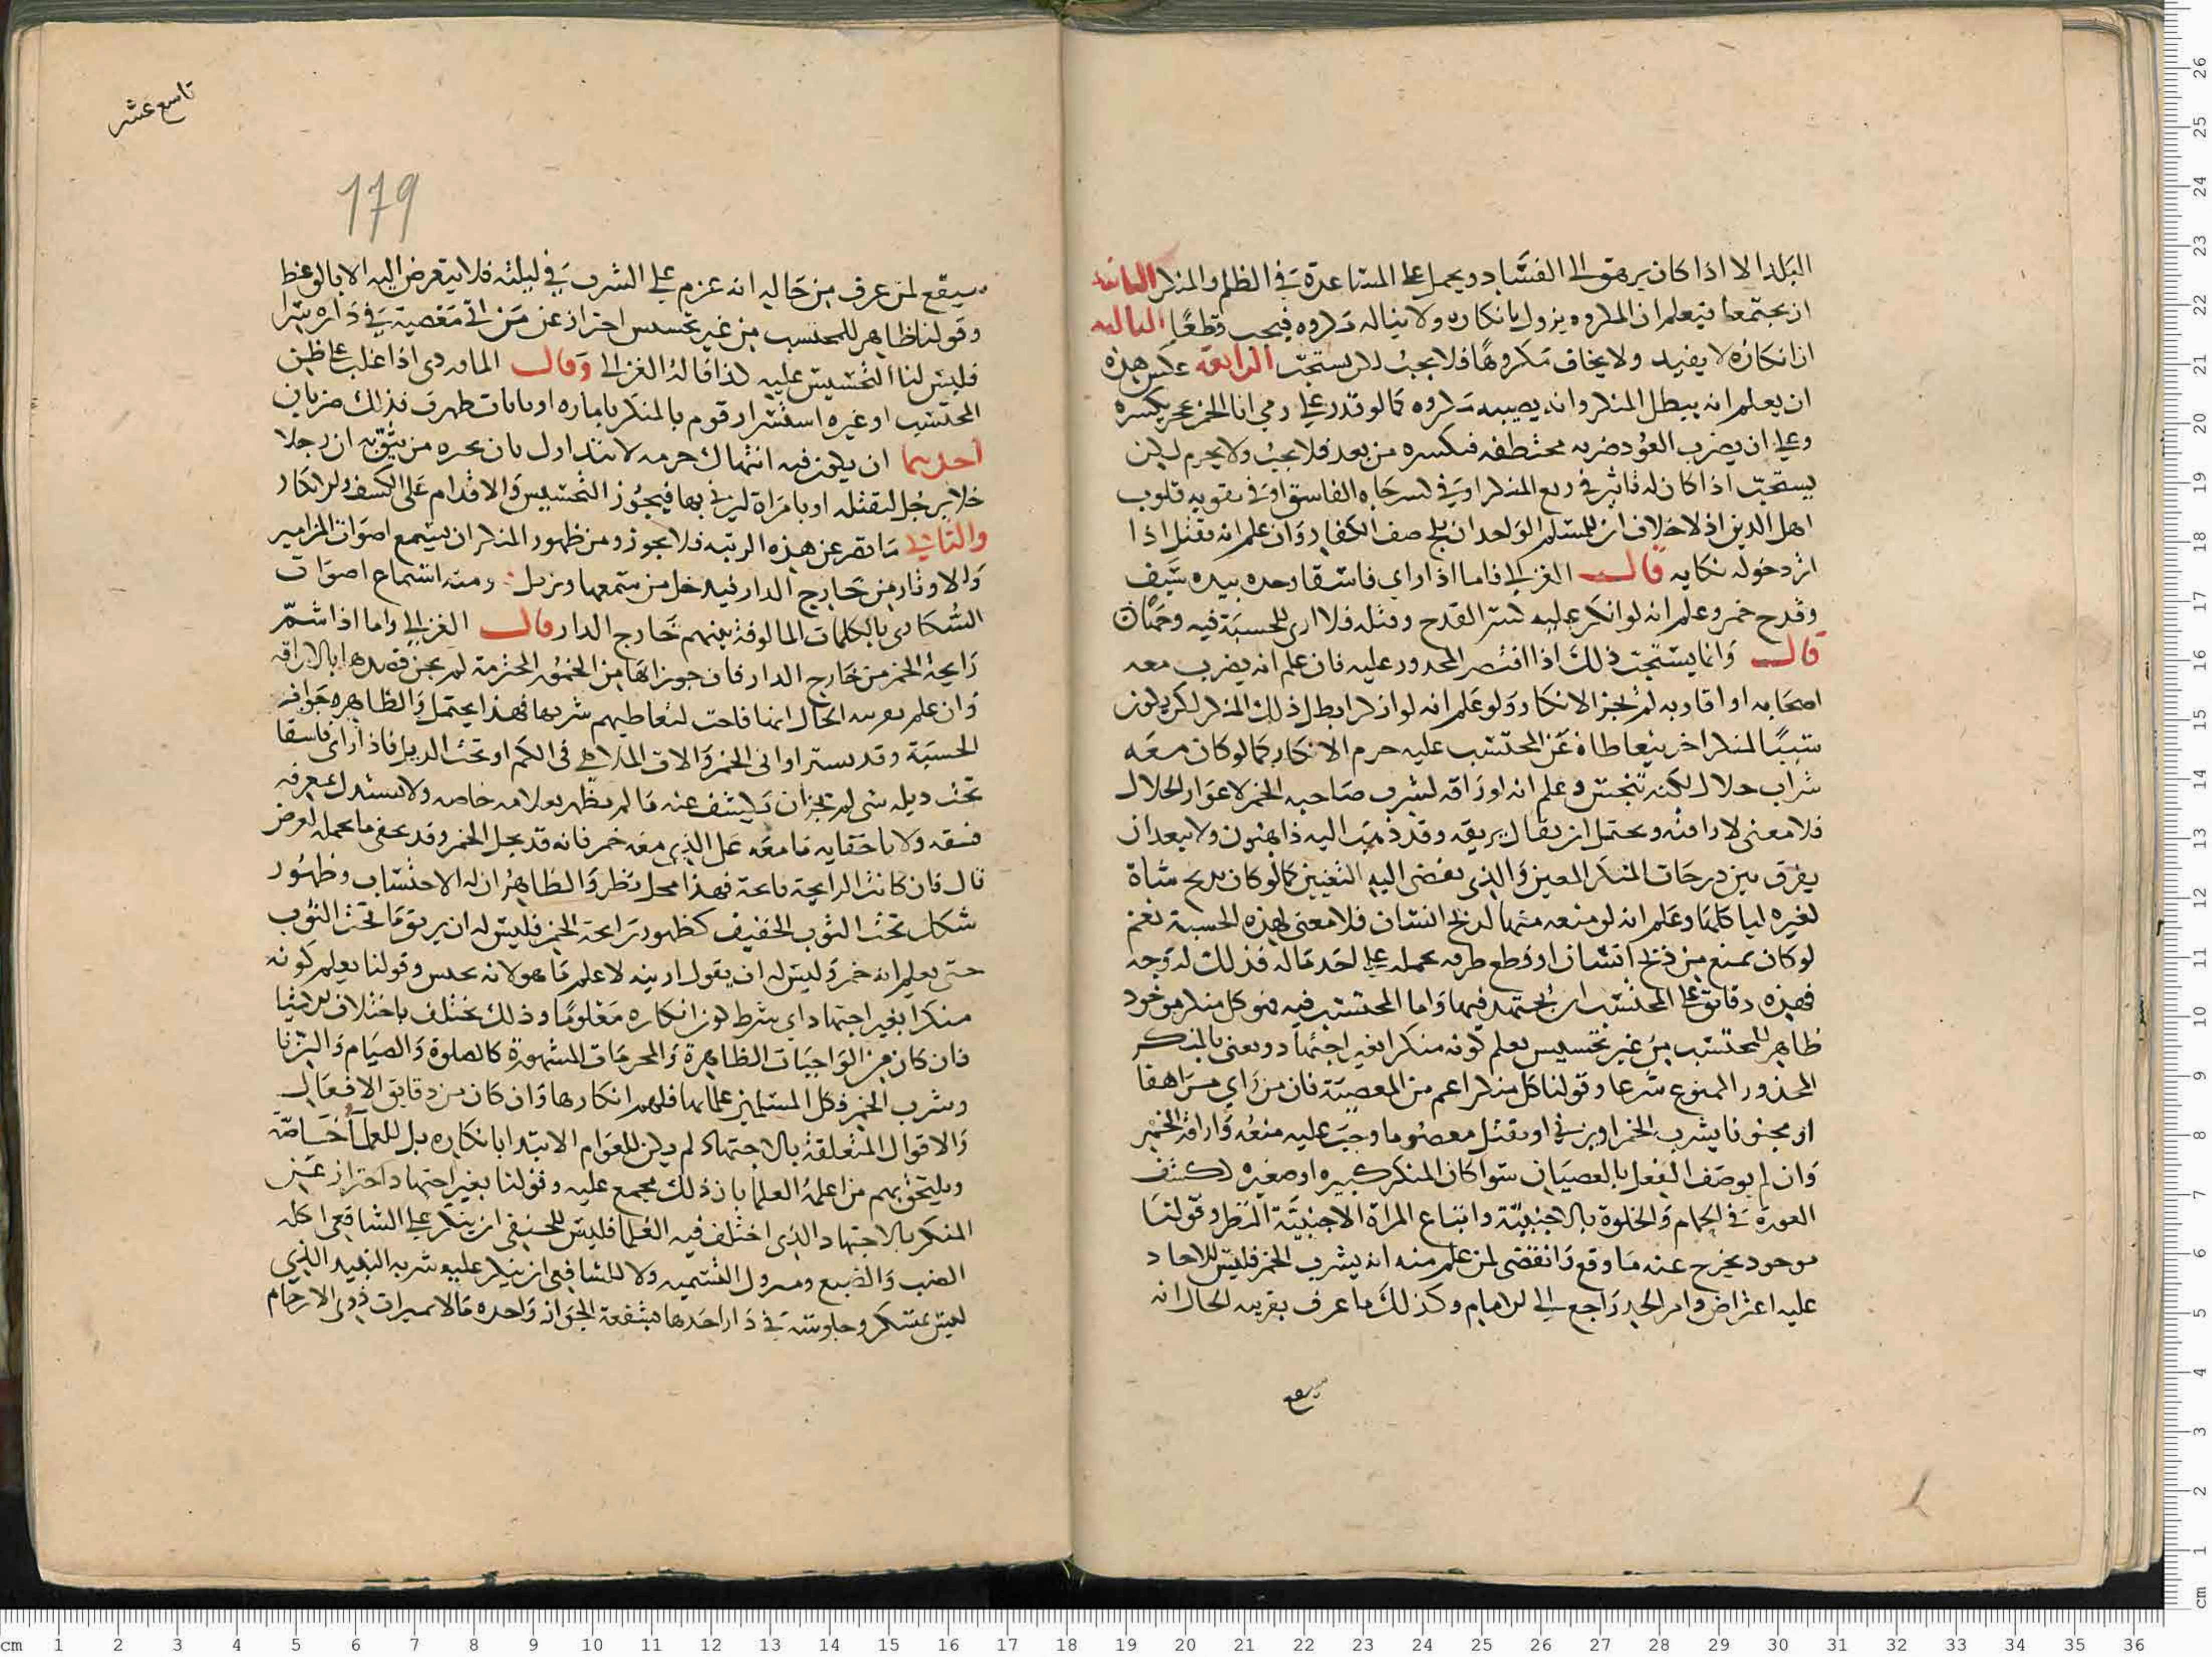 البلد الا اذا كان يرهق الى الفساد ويحمل على المساعدة في الظلم والمنكر الثانية
ان يجتمعا فيعلم ان المكروه يزول بانكاره ولا يناله مكروه فيجب قطعًا الثالثة
ان انكاره لا يفيد ولا يخاف مكروهًا فلا يجب لكن يستحب الرابعة عكس هذه
ان يعلم انه يبطل المنكر وانه يصيبه مكروه كما لو قدر على رمي انا الخمر بحجر يكسره
وعلى ان يضرب العود ضربه مختطفه فيكسره من بعد فلا يجب ولا يحرم لكن
يستحب اذا كان له تاثير في رفع المنكر او في كسر جاه الفاسق او في تقويه قلوب
اهل الدين اذ لا خلاف ان للمسلم الواحد ان يلج صف الكفار وان علم انه يقتل اذا
اثر دخوله نكايه قال الغزالي فاما اذا راى فاسقا وحده بيده سيف
وقدح خمر وعلم انه لو انكر عليه لشرب القدح وقتله فلا ارى للحسبة فيه وجهًا
قال وانما يستحب ذلك اذا اقتصر المحدور عليه فان علم انه يضرب معه
اصحابه او اقاربه لم يجز الانكار ولو علم انه لو انكر ابطل ذلك المنكر لكن يكون
سببًا لمنكر اخر يتعاطاه غير المحتسب عليه حرم الانكار كما لو كان معه
شراب حلال لكنه تنجس وعلم انه لو راقه لشرب صاحبه الخمر لاعواز الحلال
فلا معنى لاراقته ويحتمل ان يقال يريقه وقد ذهب اليه ذاهبون ولا يبعد ان
يفرق بين درجات المنكر المعين والذي يفضى اليه التغيير كما لو كان يذبح شاة
لغيره لياكلها وعلم انه لو منعه منها لذبح انسان فلا معنى لهذه الحسبة نعم
لو كان يمنع من ذبح انسان او قطع طرفه يحمله على اخذ ماله فذلك له وجه
فهذه دقائق على المحتسب ان يجتهد فيها واما المحتسب فيه فهو كل منكر موجود
ظاهر للمحتسب من غير تجسيس يعلم كونه منكرا بغير اجتهاد ويعنى بالمنكر
المحذور الممنوع شرعا وقولنا كل منكر اعم من المعصية فان من راي مراهقا
او مجنونا يشرب الخمر او يزني او يقتل معصوما وجب عليه منعه واراقة الخمر
وان لم يوصف الفعل بالعصيان سوا كان المنكر كبيره او صغيره ككشف
العورة في الحمام والخلوة بالاجنبية واتباع المراة الاجنبية النظر وقولنا
موجود يخرج عنه ما وقع وانقضى لمن علم منه انه يشرب الخمر فليس للاحاد
عليه اعتراض وامر الحد راجع الى الامام وكذلك ما عرف بقرينه الحال انه
سيقع
تاسع عشر
179
سيقع لمن عرف من حاله انه عزم على الشرب في ليلته فلا يتعرض اليه الا بالوعظ
وقولنا ظاهر للمحتسب من غير تجسس احتراز عن من اتى مغصية في داره سترا
فليس لنا التجسيس عليه كذا قاله الغزالي وقال الماوردى اذا غلب على ظن
المحتسب او غيره استسرار قوم بالمنكر باماره او بابات ظهرت فذلك ضربان
احدهما ان يكون فيه انتهاك حرمه لا تتدارك بان يخبره من يثق به ان رجلا
خلا برجل لتقتله او بامراة ليزني بها فيجوز التجسيس والاقدام على الكشف والانكار
والثاني ما تقر عن هذه الرتبه فلا يجوز ومن ظهور المنكر ان يسمع اصوات المزامير
والاوتار من خارج الدار فيدخل من سمعها ويزيل ومنه استماع اصوات
السكارى بالكلمات المالوفة بينهم خارج الدار قال الغزالي واما اذا شم
رايحة الخمر من خارج الدار فان جوز انها من الخمور المحترمة لم يجز قصدها بالاراقه
وان علم بقرينه الحال انها فاحت لتعاطيهم شربها فهذا يحتمل والظاهر جواز
الحسبة وقد يستر اوانى الخمر والات الملاهي في الكم او تحت الذيل فاذا راى فاسقا
تحت ديله شي لم يجز ان يكشف عنه ما لم يظهر بعلامه خاصه ولا يستدل بمعرفه
فسقه ولا باخفايه ما معه على الذي معه خمر فانه قد يحمل الخمر وقد يخفي ما يحمله لغرض
قال فان كانت الرايحة فايحة فهذا محل نظر والظاهر ان له الاحتساب وظهور
شكل تحت الثوب الخفيف كظهور رايحة الخمر فليس له ان يريق ما تحت الثوب
حتى يعلم انه خمر وليس له ان يقول ارينيه لاعلم ما هو لانه تجسس وقولنا يعلم كونه
منكرا بغير اجتهاد اي شرط كون انكاره معلومًا وذلك يختلف باختلاف الاشيا
فان كان من الواجبات الظاهرة والمحرمات المشهورة كالصلوة والصيام والزنا
وشرب الخمر فكل المسلمين علما بها فلهم انكارها وان كان من دقايق الافعال
والاقوال المتعلقة بالاجتهاد لم يكن للعوام الابتدا بانكاره بل للعلمآ خاصة
ويلتحق بهم من اعلمه العلما بان ذلك مجمع عليه وقولنا بغير اجتهاد احتراز عن
المنكر بالاجتهاد الذي اختلف فيه العلما فليس للحنيفى ان ينكر على الشافعي اكله
الضب والضبع ومتروك التسميه ولا للشافعي ان ينكر عليه شربه النبيد الذي
ليس بمسكر وجلوسه في دار اخدها بشفعة الجوار واخده مالا بميرات ذوى الارحام